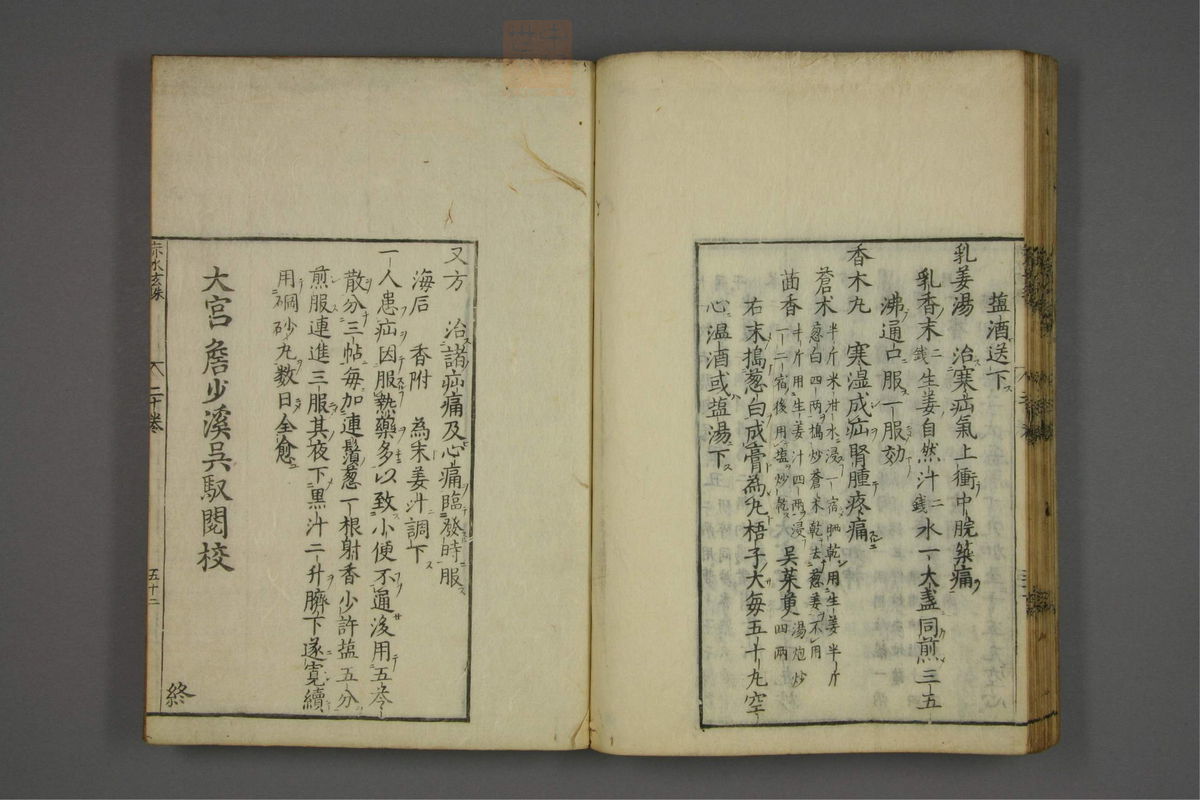 塩酒送下
乳姜湯 治寒疝氣上衝中脘築痛
乳香末二錢生姜自然汁二錢水一大盞同煎三五
沸通口服一服効
香木丸 寒湿成疝腎腫疼痛
蒼术半斤米泔水浸一宿晒乾用生姜半斤
葱白四两搗炒蒼术乾去葱姜不用
茴香半斤用生姜汁四两浸
一二宿後用塩炒乾 吴茱萸四两湯炮炒
右末搗葱白成膏為丸梧子大每五十丸空
心温酒或塩湯下
又方 治諸疝痛及心痛臨發時服
海石 香附 為末姜汁調下
一人患疝因服熱藥多以致小便不通後用五苓
散分三帖每加連鬚葱一根射香少許塩五分
煎服連進三服其夜下黑汁二升臍下遂寬續
用硐砂丸数日全愈
大宫詹少溪吴馭閱校
終
赤水玄珠
二十卷
五十二